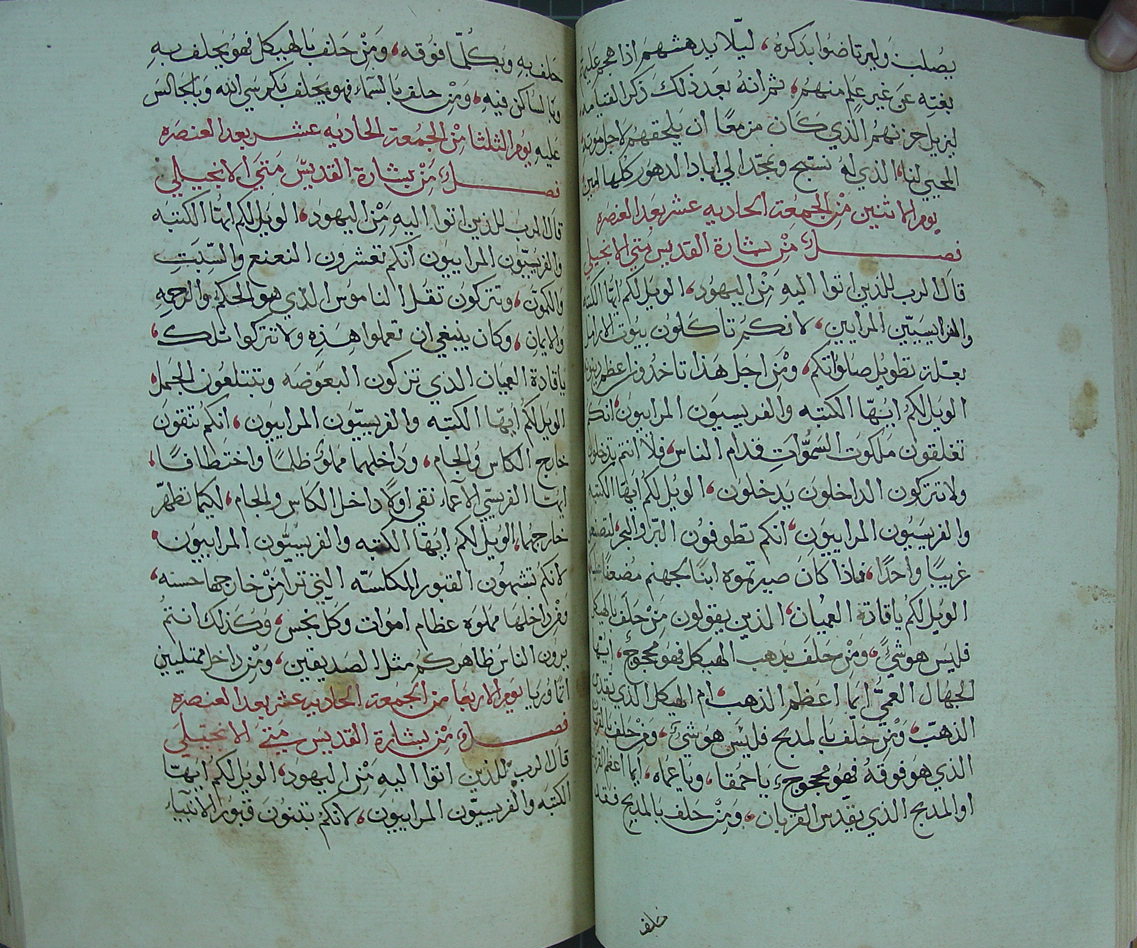 يصلب ولم يرتاضوا بذكره، ليلّا يدهشهم اذا هجم عليهم
بغته عن غير علم منهم، ثم انه بعد ذلك ذكر القيامه
ليزيل حزنهم الذي كان مزمعًا ان يلحقهم لاجل موت
المحيي لنا، الذي له نسبّح ونمجّد الي اباد الدهور كلها امين
يوم الاثنين من الجمعة الحاديه عشر بعد العنصره
فصل من بشارة القديس متي الانجيلي
قال الرب للذين اتوا اليه من اليهود، الويل لكم ايها الكتبه
والفرايسيّين المرايين، لانكم تاكلون بيوت الارامل
بعلة تطويل صلواتكم، ومن اجل هذا تاخذون اعظم
الويل لكم ايّها الكتبه والفريسيون المراييون، انكم
تغلقون ملكوت السموات قدام الناس، فلا انتم تدخلون
ولا تتركون الداخلون يدخلون، الويل لكم ايها الكتبه
والفريسيون المراييون، انكم تطوفون البر والبحر لتصنعوا
غريبًا واحدًا، فاذا كان صيرتموه ابنًا لجهنم مضعفًا
الويل لكم ياقادة العميان، الذين يقولون من حلف بالهيكل
فليس هو شيئ، ومن حلف بذهب الهيكل فهو محجوج، ايها
الجهال العميّ ايما اعظم الذهب ام الهيكل الذي يقدس
الذهب، ومن حلف بالمدبح فليس هو شيئ، ومن حلف بالقربان
الذي هو فوقه فهو محجوج، ياحمقا، وياعماه، ايما اعظم القربان
او المدبح الذي يقدّس القربان، ومن حلف بالمدبح فقد
حلف
حلف به وبكلّما فوقه، ومن حلف بالهيكل فهو يحلف به
وبالساكن فيه، ومن حلف بالسماء فهو يحلف بكرسي الله وبالجالس
عليه يوم الثلثا من الجمعة الحاديه عشر بعد العنصره
فصل من بشارة القديس متي الانجيلي
قال الرب للذين اتوا اليه من اليهود، الويل لكم ايها الكتبه
والفريسيّون المراييون انكم تعشرون النعنع والسبت
والكمون، وتتركون ثقل الناموس الذي هو الحكم والرحمه
والايمان، وكان ينبغي ان تعملوا هذه ولا تتركوا تلك،
ياقادة العميان الذي تزكون البعوضه وتبتلعون الجمل
الويل لكم ايها الكتبه والفريسيّون المراييون، انكم تنقون
خارج الكاس والجام، وداخلهما مملوّ ظلمًا واختطافًا،
ايها الفريسي الاعماء نقي اولًا داخل الكاس والجام، لكيما تطهر
خارجهما، الويل لكم ايها الكتبه والفريسيّون المراييون،
لانكم تشبهون القبور المكلسه التي ترا من خارجها حسنه،
ومن داخلها مملوه عظام اموات وكل نجس، وكذلك انتم
يرون الناس ظاهركم مثل الصديقين، ومن داخل ممتليين
اثما وريا يوم الاربعا من الجمعة الحاديه عشر بعد العنصره
فصل من بشارة القديس متي الانجيلي
قال الرب للذين اتوا اليه من اليهود، الويل لكم ايها
الكتبه والفريسيّون المراييون، لانكم تبنون قبور الانبياء